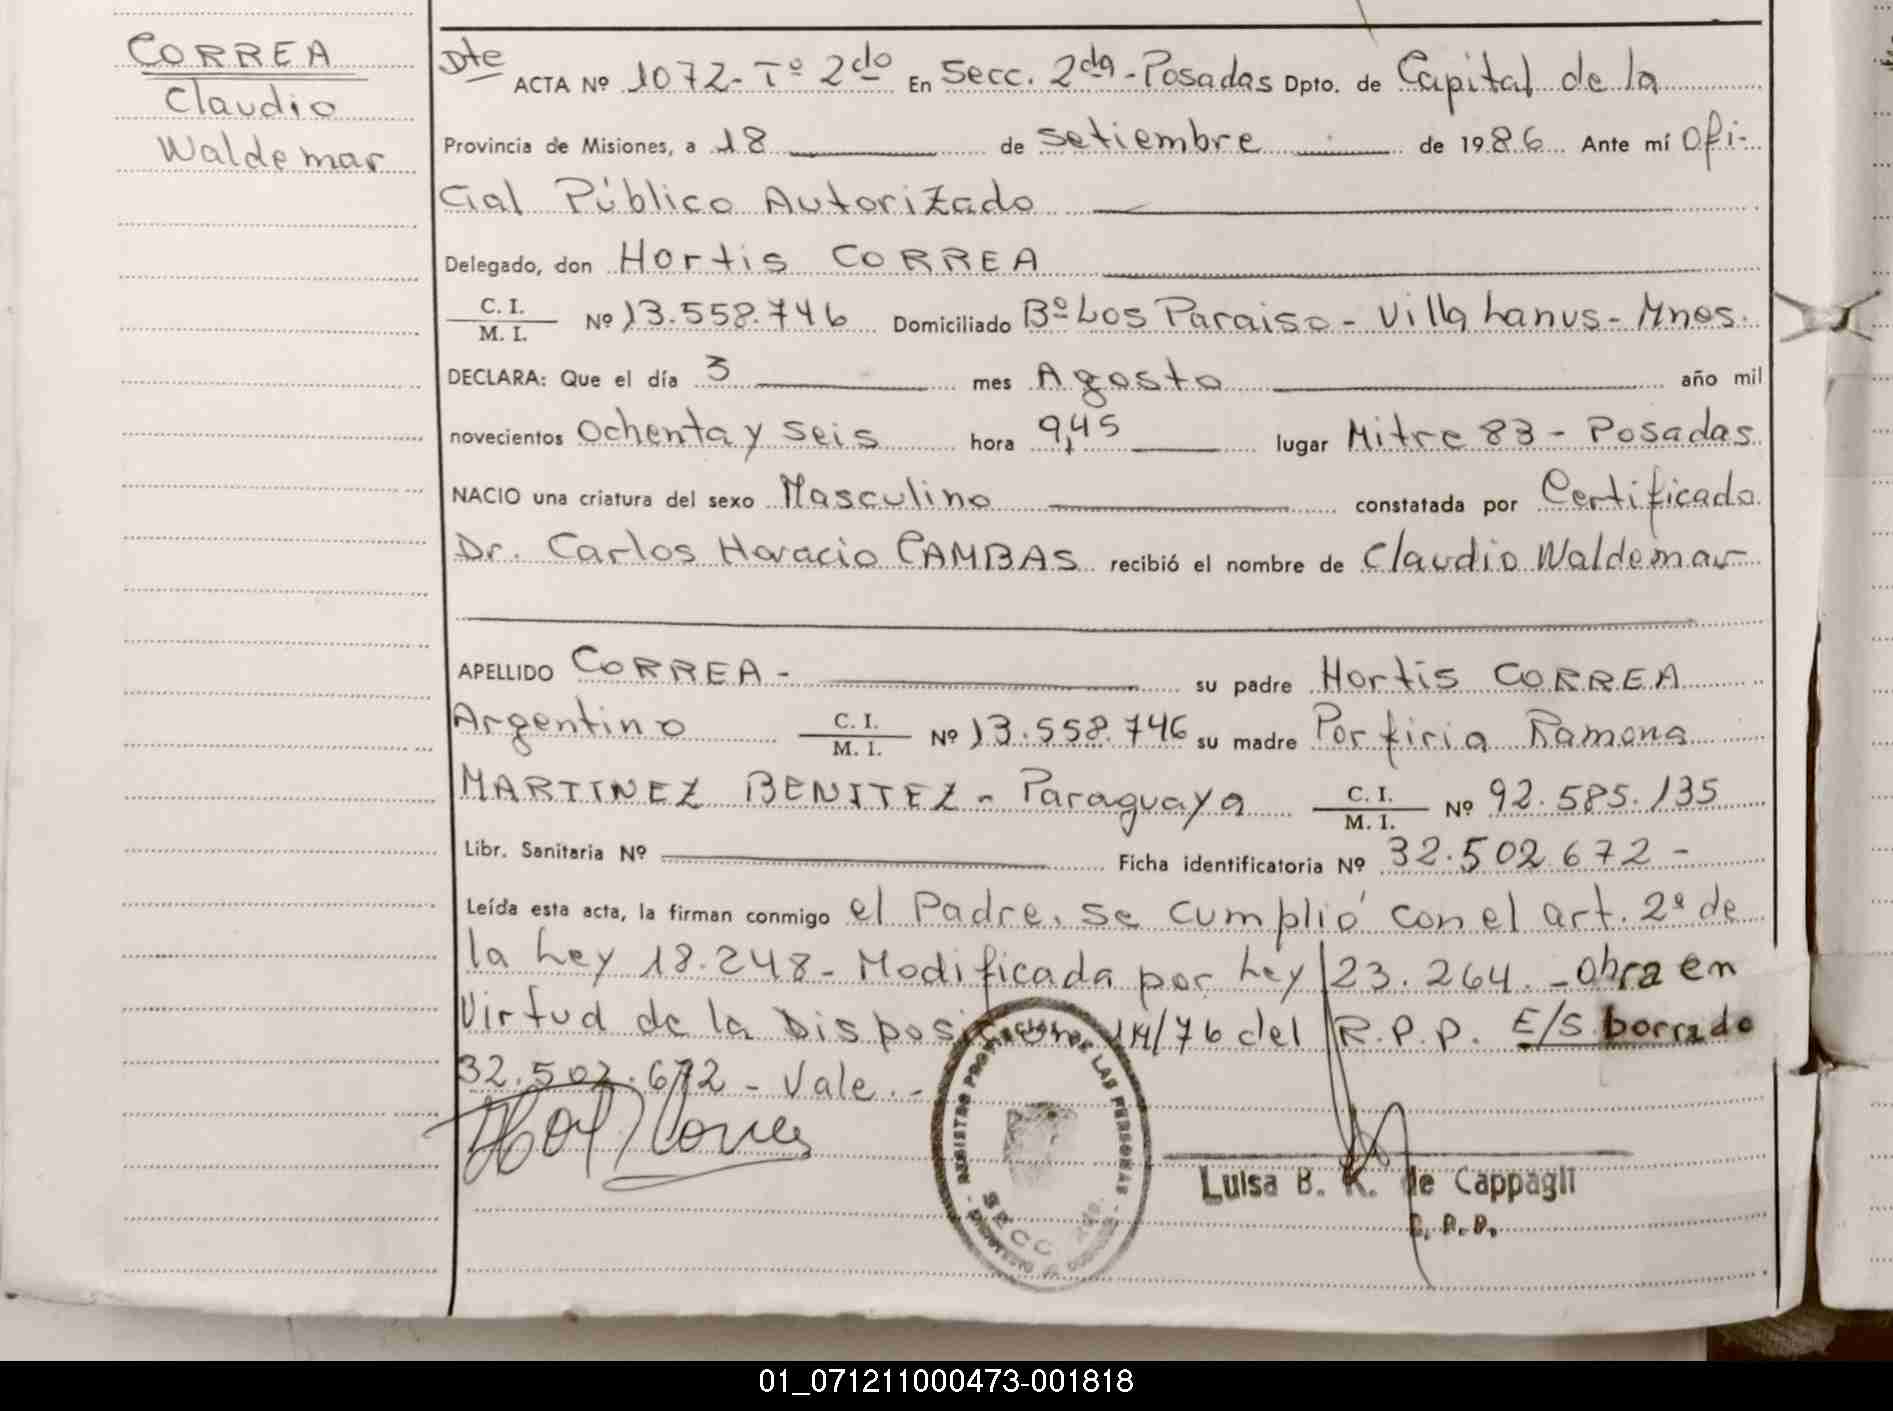 CORREA
Claudio
Waldemar
Dte ACTA Nº 1072- Tº 2do En Secc. 2da - Posadas Dpto. de Capital de la
Provincia de Misiones, a 18 de Setiembre de 1986 Ante mí Ofi-
cial Público Autorizado
Delegado, don Hortis CORREA
C. I.
M. I. Nº 13.558.746 Domiciliado Bº Los Paraiso - Villa Lanus - Mnes.
DECLARA: Que el día 3 mes Agosto año mil
novecientos Ochenta y seis hora 9,45 lugar Mitre 83 - Posadas
NACIO una criatura del sexo Masculino constatada por Certificado
Dr. Carlos Horacio CAMBAS recibió el nombre de Claudio Waldemar
APELLIDO CORREA - su padre Hortis CORREA
Argentino C. I. M. I. Nº 13.558.746 su madre Porfiria Ramona
MARTINEZ BENITEZ - Paraguaya C. I. M. I. Nº 92.585.135
Libr. Sanitaria Nº Ficha identificatoria Nº 32.502.672 -
Leída esta acta, la firman conmigo el Padre, se cumplió con el art. 2º de
la Ley 18.248 - Modificada por Ley 23.264. - Obra en
Virtud de la Disposición 14/76 del R.P.P. E/S borrado
32.502.672 - Vale. -
REGISTRO PROVINCIAL DE LAS PERSONAS
SECC
Luisa B. K. de Cappagli
01_071211000473-001818